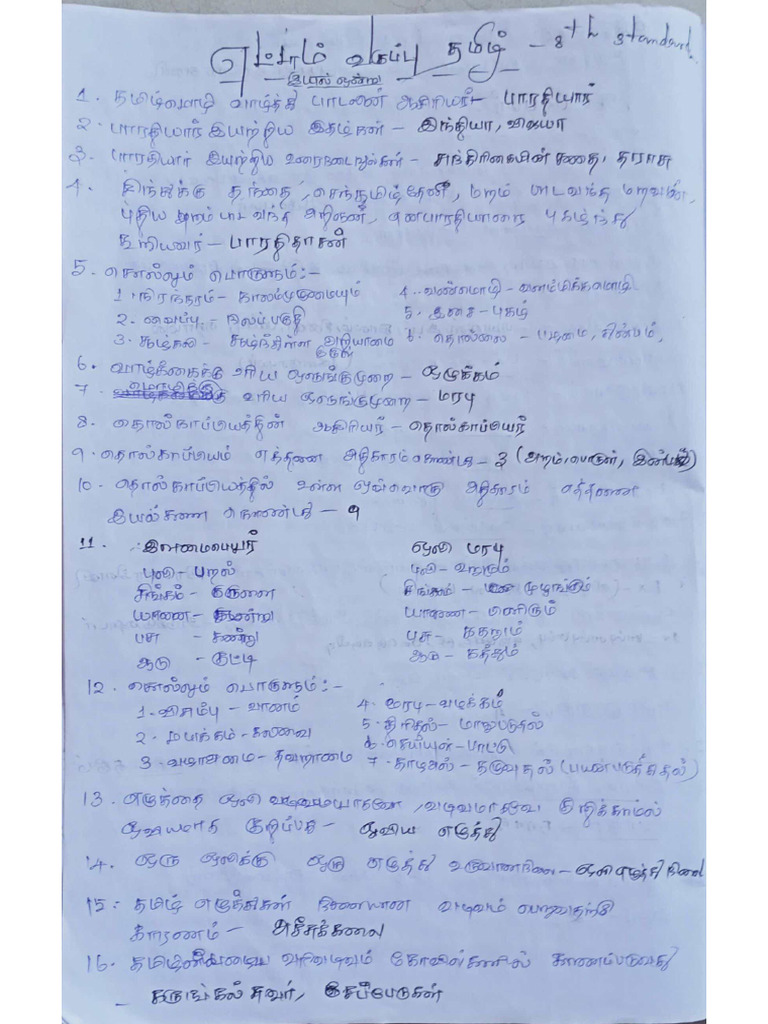 எட்டாம் வகுப்பு தமிழ் - 8th standard
- இயல் ஒன்று
1. தமிழ்மொழி வாழ்த்து பாடலின் ஆசிரியர் - பாரதியார்
2. பாரதியார் இயற்றிய இதழ்கள் - இந்தியா, விஜயா
3. பாரதியார் இயற்றிய உரைநடைநூல்கள் - சந்திரிகையின் கதை, தராசு
4. சிந்துக்கு தந்தை, செந்தமிழ்தேனீ, மறம் பாடவந்த மறவன்,
புதிய அறம் பாட வந்த அறிஞன், என பாரதியாரை புகழ்ந்து
கூறியவர் - பாரதிதாசன்
5. சொல்லும் பொருளும் :-
1. நிரந்தரம் - காலம்முழுமையும்
4. வண்மொழி - வளமிக்கமொழி
2. வைப்பு - நிலப்பகுதி
5. இசை - புகழ்
3. சூழ்கலி - சூழ்ந்துள்ள அறியாமை இருள்
6. தொல்லை - பழமை, துன்பம்
6. வாழ்க்கைக்கு உரிய ஒழுங்குமுறை - ஒழுக்கம்
7. மொழிக்கு உரிய ஒழுங்குமுறை - மரபு
8. தொல்காப்பியத்தின் ஆசிரியர் - தொல்காப்பியர்
9. தொல்காப்பியம் எத்தனை அதிகாரம் கொண்டது - 3 (அறம், பொருள், இன்பம்)
10. தொல்காப்பியத்தில் உள்ள ஒவ்வொரு அதிகாரம் எத்தனை
இயல்களை கொண்டது - 9
11. இளமைபெயர்
ஒலி மரபு
புலி - பறல்
புலி - உறுமும்
சிங்கம் - குருளை
சிங்கம் - முழங்கும்
யானை - கன்று
யானை - பிளிரும்
பசு - கன்று
பசு - கதறும்
ஆடு - குட்டி
ஆடு - கத்தும்
12. சொல்லும் பொருளும் :-
1. விசும்பு - வானம்
4. மரபு - வழக்கம்
2. மயக்கம் - கலவை
5. திரிதல் - மாறுபடுதல்
3. வழாஅமை - தவறாமை
6. செய்யுள் - பாட்டு
7. தழாஅல் - தழுவுதல் (பயன்படுத்துதல்)
13. எழுத்தை ஒலி வடிவமாகவோ, வடிவமாகவே குறிக்காமல்
ஓவியமாக குறிப்பது - ஓவிய எழுத்து
14. ஒரு ஒலிக்கு ஒரு எழுத்து உருவானநிலை - ஒலி எழுத்து நிலை
15. தமிழ் எழுத்துகள் நிலையான வடிவம் பெறுவதற்கு
காரணம் - அச்சுக்கலை
16. தமிழின் பழைய வரிவடிவம் கோவில்களில் காணப்படுவது
- கருங்கல் சுவர், செப்பேடுகள்